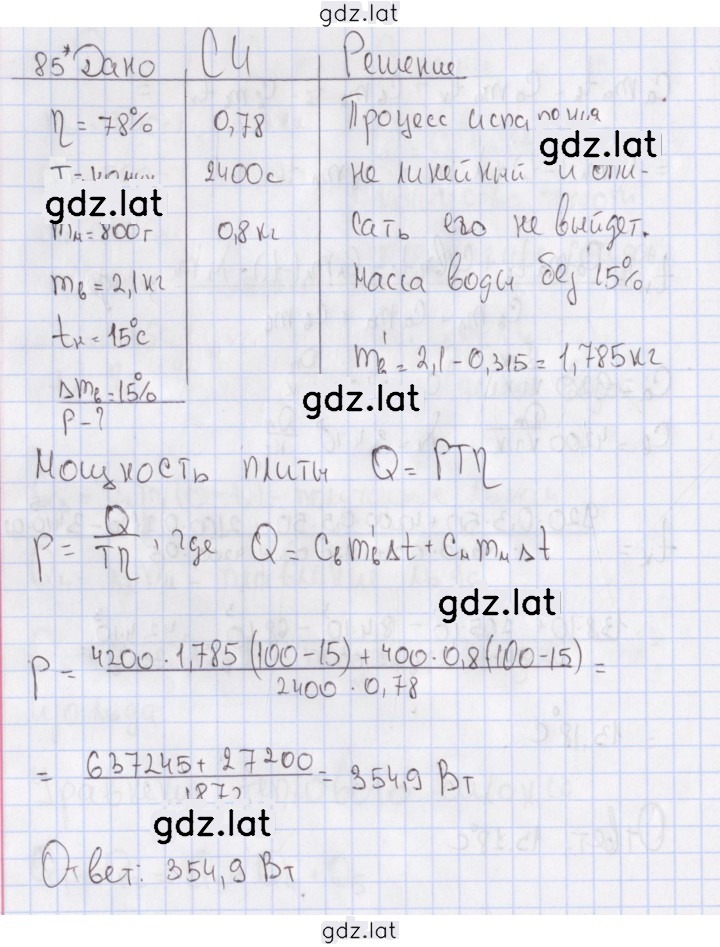 gdz.lat
85* Дано СИ Решение
η = 78% 0,78 Процесс испа
gdz.lat
2400с не линейный и опи-
gdz.lat
mм = 800г 0,8 кг сать его не выйдет.
mв = 2,1 кг масса воды без 15%
tн = 15°С
m'в = 2,1 - 0,315 = 1,785 кг
Δmв = 15%
gdz.lat
P - ?
Мощность плиты Q = PTη
P = Q/Tη, где Q = Cв m'в Δt + Cм mм Δt
gdz.lat
P = 4200 · 1,785 (100 - 15) + 400 · 0,8 (100 - 15) / 2400 · 0,78 =
= 637245 + 27200 / 1872 = 354,9 Вт
gdz.lat
Ответ: 354,9 Вт
gdz.lat